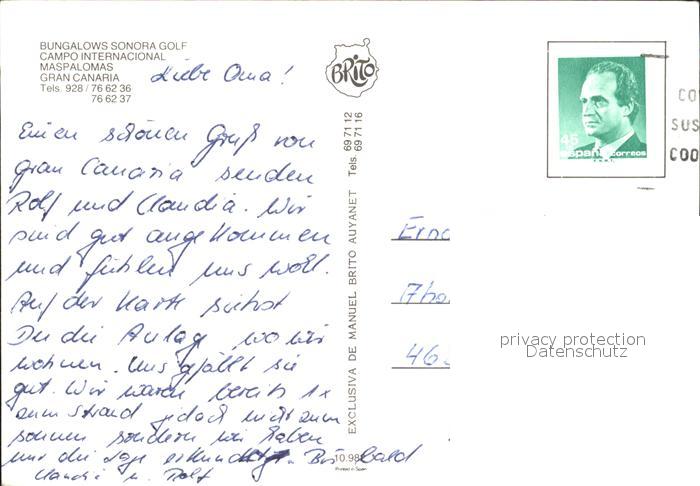 BUNGALOWS SONORA GOLF
CAMPO INTERNACIONAL
MASPALOMAS
GRAN CANARIA
Tels. 928 / 76 62 36
76 62 37
Liebe Oma!
Einen schönen Gruß von
Gran Canaria senden
Rolf und Claudia. Wir
sind gut angekommen
und fühlen uns wohl.
Auf der Karte siehst
Du die Anlage wo wir
wohnen. Uns gefällt sie
gut. Wir waren bereits 1x
zum Strand jedoch nicht zum
sonnen sondern wir haben
nur die Lage erkundigt. Bis Bald
Claudia u. Rolf
BRITO
EXCLUSIVA DE MANUEL BRITO AUYANET Tels. 69 71 12
69 71 16
10.98
Printed in Spain
45
España correos
SUS
COO
Erno
46
privacy protection
Datenschutz